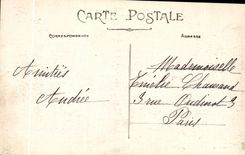 CARTE POSTALE
CORRESPONDANCE
ADRESSE
Amitiés
Andrée
Mademoiselle
Émilie Chamand
3 rue Oudinot 3
Paris